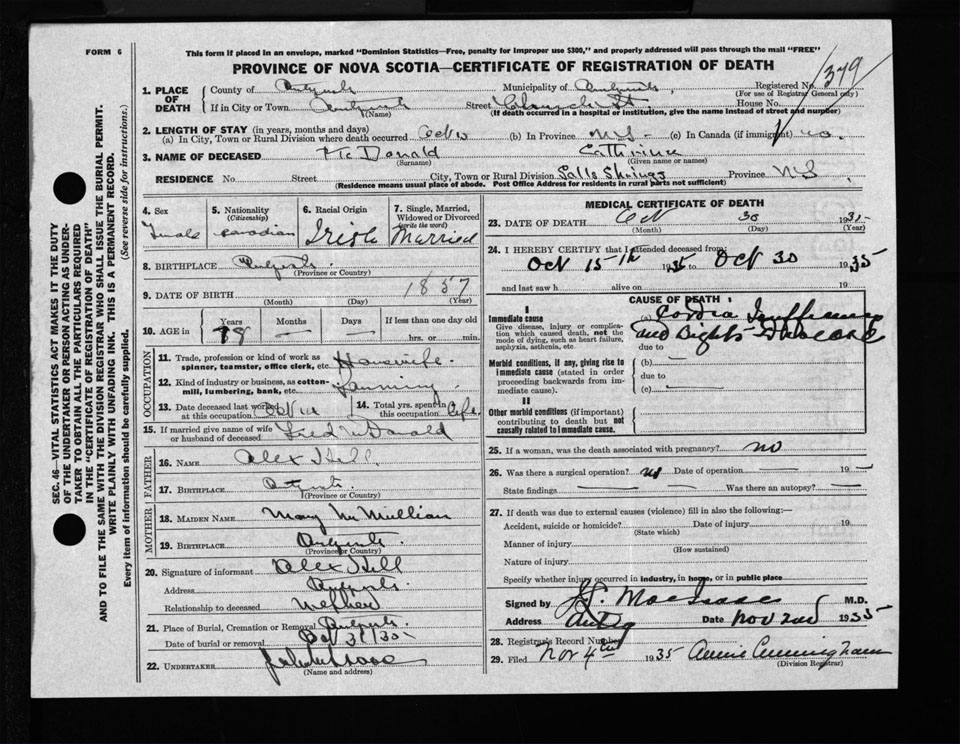 FORM 6
This form if placed in an envelope, marked "Dominion Statistics—Free, penalty for improper use $300," and properly addressed will pass through the mail "FREE"
PROVINCE OF NOVA SCOTIA—CERTIFICATE OF REGISTRATION OF DEATH
1. PLACE OF DEATH
County of
Municipality of
Registered No. 1379
(For use of Registrar General only)
If in City or Town
(Name)
Street Church St. House No.
(If death occurred in a hospital or institution, give the name instead of street and number)
2. LENGTH OF STAY (in years, months and days)
(a) In City, Town or Rural Division where death occurred (b) In Province N.S. (c) In Canada (if immigrant) no.
3. NAME OF DECEASED McDonald
(Surname)
Cathrine
(Given name or names)
RESIDENCE No. Street City, Town or Rural Division Springs Province N.S.
(Residence means usual place of abode. Post Office Address for residents in rural parts not sufficient)
4. Sex
Female
5. Nationality
(Citizenship)
Canadian
6. Racial Origin
Irish
7. Single, Married, Widowed or Divorced
(write the word)
Married
8. BIRTHPLACE
(Province or Country)
9. DATE OF BIRTH 1857
(Month) (Day) (Year)
10. AGE in
Years Months Days If less than one day old
78 — —
hrs. or min.
OCCUPATION
11. Trade, profession or kind of work as spinner, teamster, office clerk, etc. Housewife
12. Kind of industry or business, as cotton-mill, lumbering, bank, etc. Farming
13. Date deceased last worked at this occupation
14. Total yrs. spent in this occupation Life
15. If married give name of wife or husband of deceased Fred McDonald
FATHER
16. NAME Alex Hill
17. BIRTHPLACE
(Province or Country)
MOTHER
18. MAIDEN NAME Mary McMillian
19. BIRTHPLACE
(Province or Country)
20. Signature of informant Alex Hill
Address
Relationship to deceased Nephew
21. Place of Burial, Cremation or Removal
Date of burial or removal
22. UNDERTAKER
(Name and address)
MEDICAL CERTIFICATE OF DEATH
23. DATE OF DEATH Oct 30 1935
(Month) (Day) (Year)
24. I HEREBY CERTIFY that I attended deceased from:
Oct 15th 1935 to Oct 30 1935
and last saw h alive on 19
CAUSE OF DEATH
I
Immediate cause
Give disease, injury or complication which caused death, not the mode of dying, such as heart failure, asphyxia, asthenia, etc.
(a)
due to
Morbid conditions, if any, giving rise to immediate cause (stated in order proceeding backwards from immediate cause).
(b)
due to
(c)
II
Other morbid conditions (if important) contributing to death but not causally related to immediate cause.
25. If a woman, was the death associated with pregnancy? no
26. Was there a surgical operation? no Date of operation 19
State findings Was there an autopsy?
27. If death was due to external causes (violence) fill in also the following:—
Accident, suicide or homicide? Date of injury 19
(State which)
Manner of injury
(How sustained)
Nature of injury
Specify whether injury occurred in industry, in home, or in public place
Signed by MacIsaac M.D.
Address Date Nov 2nd 1935
28. Registrar's Record Number
29. Filed Nov 4th 1935 Annie Cunningham
(Division Registrar)
SEC. 46—VITAL STATISTICS ACT MAKES IT THE DUTY OF THE UNDERTAKER OR PERSON ACTING AS UNDERTAKER TO OBTAIN ALL THE PARTICULARS REQUIRED IN THE "CERTIFICATE OF REGISTRATION OF DEATH" AND TO FILE THE SAME WITH THE DIVISION REGISTRAR WHO SHALL ISSUE THE BURIAL PERMIT.
WRITE PLAINLY WITH UNFADING INK. THIS IS A PERMANENT RECORD.
Every item of information should be carefully supplied. (See reverse side for instructions.)